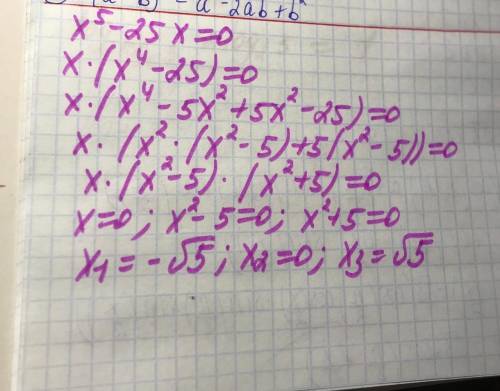 (a-b)² = a² - 2ab + b²
x⁵-25x=0
x·(x⁴-25)=0
x·(x⁴-5x²+5x²-25)=0
x·(x²·(x²-5)+5(x²-5))=0
x·(x²-5)·(x²+5)=0
x=0; x²-5=0; x²+5=0
x₁=-√5; x₂=0; x₃=√5